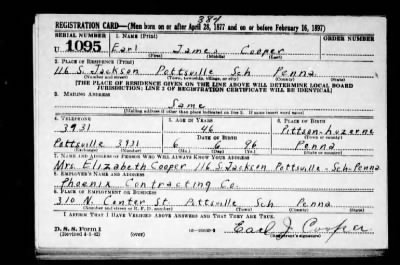 384
REGISTRATION CARD—(Men born on or after April 28, 1877 and on or before February 16, 1897)
SERIAL NUMBER 1. NAME (Print) ORDER NUMBER
U 1095 Earl James Cooper
(First) (Middle) (Last)
2. PLACE OF RESIDENCE (Print)
116 S. Jackson Pottsville Sch Penna
(Number and street) (Town, township, village, or city) (County) (State)
[THE PLACE OF RESIDENCE GIVEN ON THE LINE ABOVE WILL DETERMINE LOCAL BOARD
JURISDICTION; LINE 2 OF REGISTRATION CERTIFICATE WILL BE IDENTICAL]
3. MAILING ADDRESS
Same
[Mailing address if other than place indicated on line 2. If same insert word same]
4. TELEPHONE 5. AGE IN YEARS 6. PLACE OF BIRTH
3931 46 Pittson-Luzerne
DATE OF BIRTH (Town or county)
Pottsville 3931 6 6 96 Penna
(Exchange) (Number) (Mo.) (Day) (Yr.) (State or country)
7. NAME AND ADDRESS OF PERSON WHO WILL ALWAYS KNOW YOUR ADDRESS
Mrs. Elizabeth Cooper 116 S. Jackson Pottsville-Sch-Penna
8. EMPLOYER'S NAME AND ADDRESS
Phoenix Contracting Co.
9. PLACE OF EMPLOYMENT OR BUSINESS
310 N. Center St Pottsville Sch Penna
(Number and street or R. F. D. number) (Town) (County) (State)
I AFFIRM THAT I HAVE VERIFIED ABOVE ANSWERS AND THAT THEY ARE TRUE.
D. S. S. Form 1
(Revised 4-1-42) (over) Earl J. Cooper
(Registrant's signature)